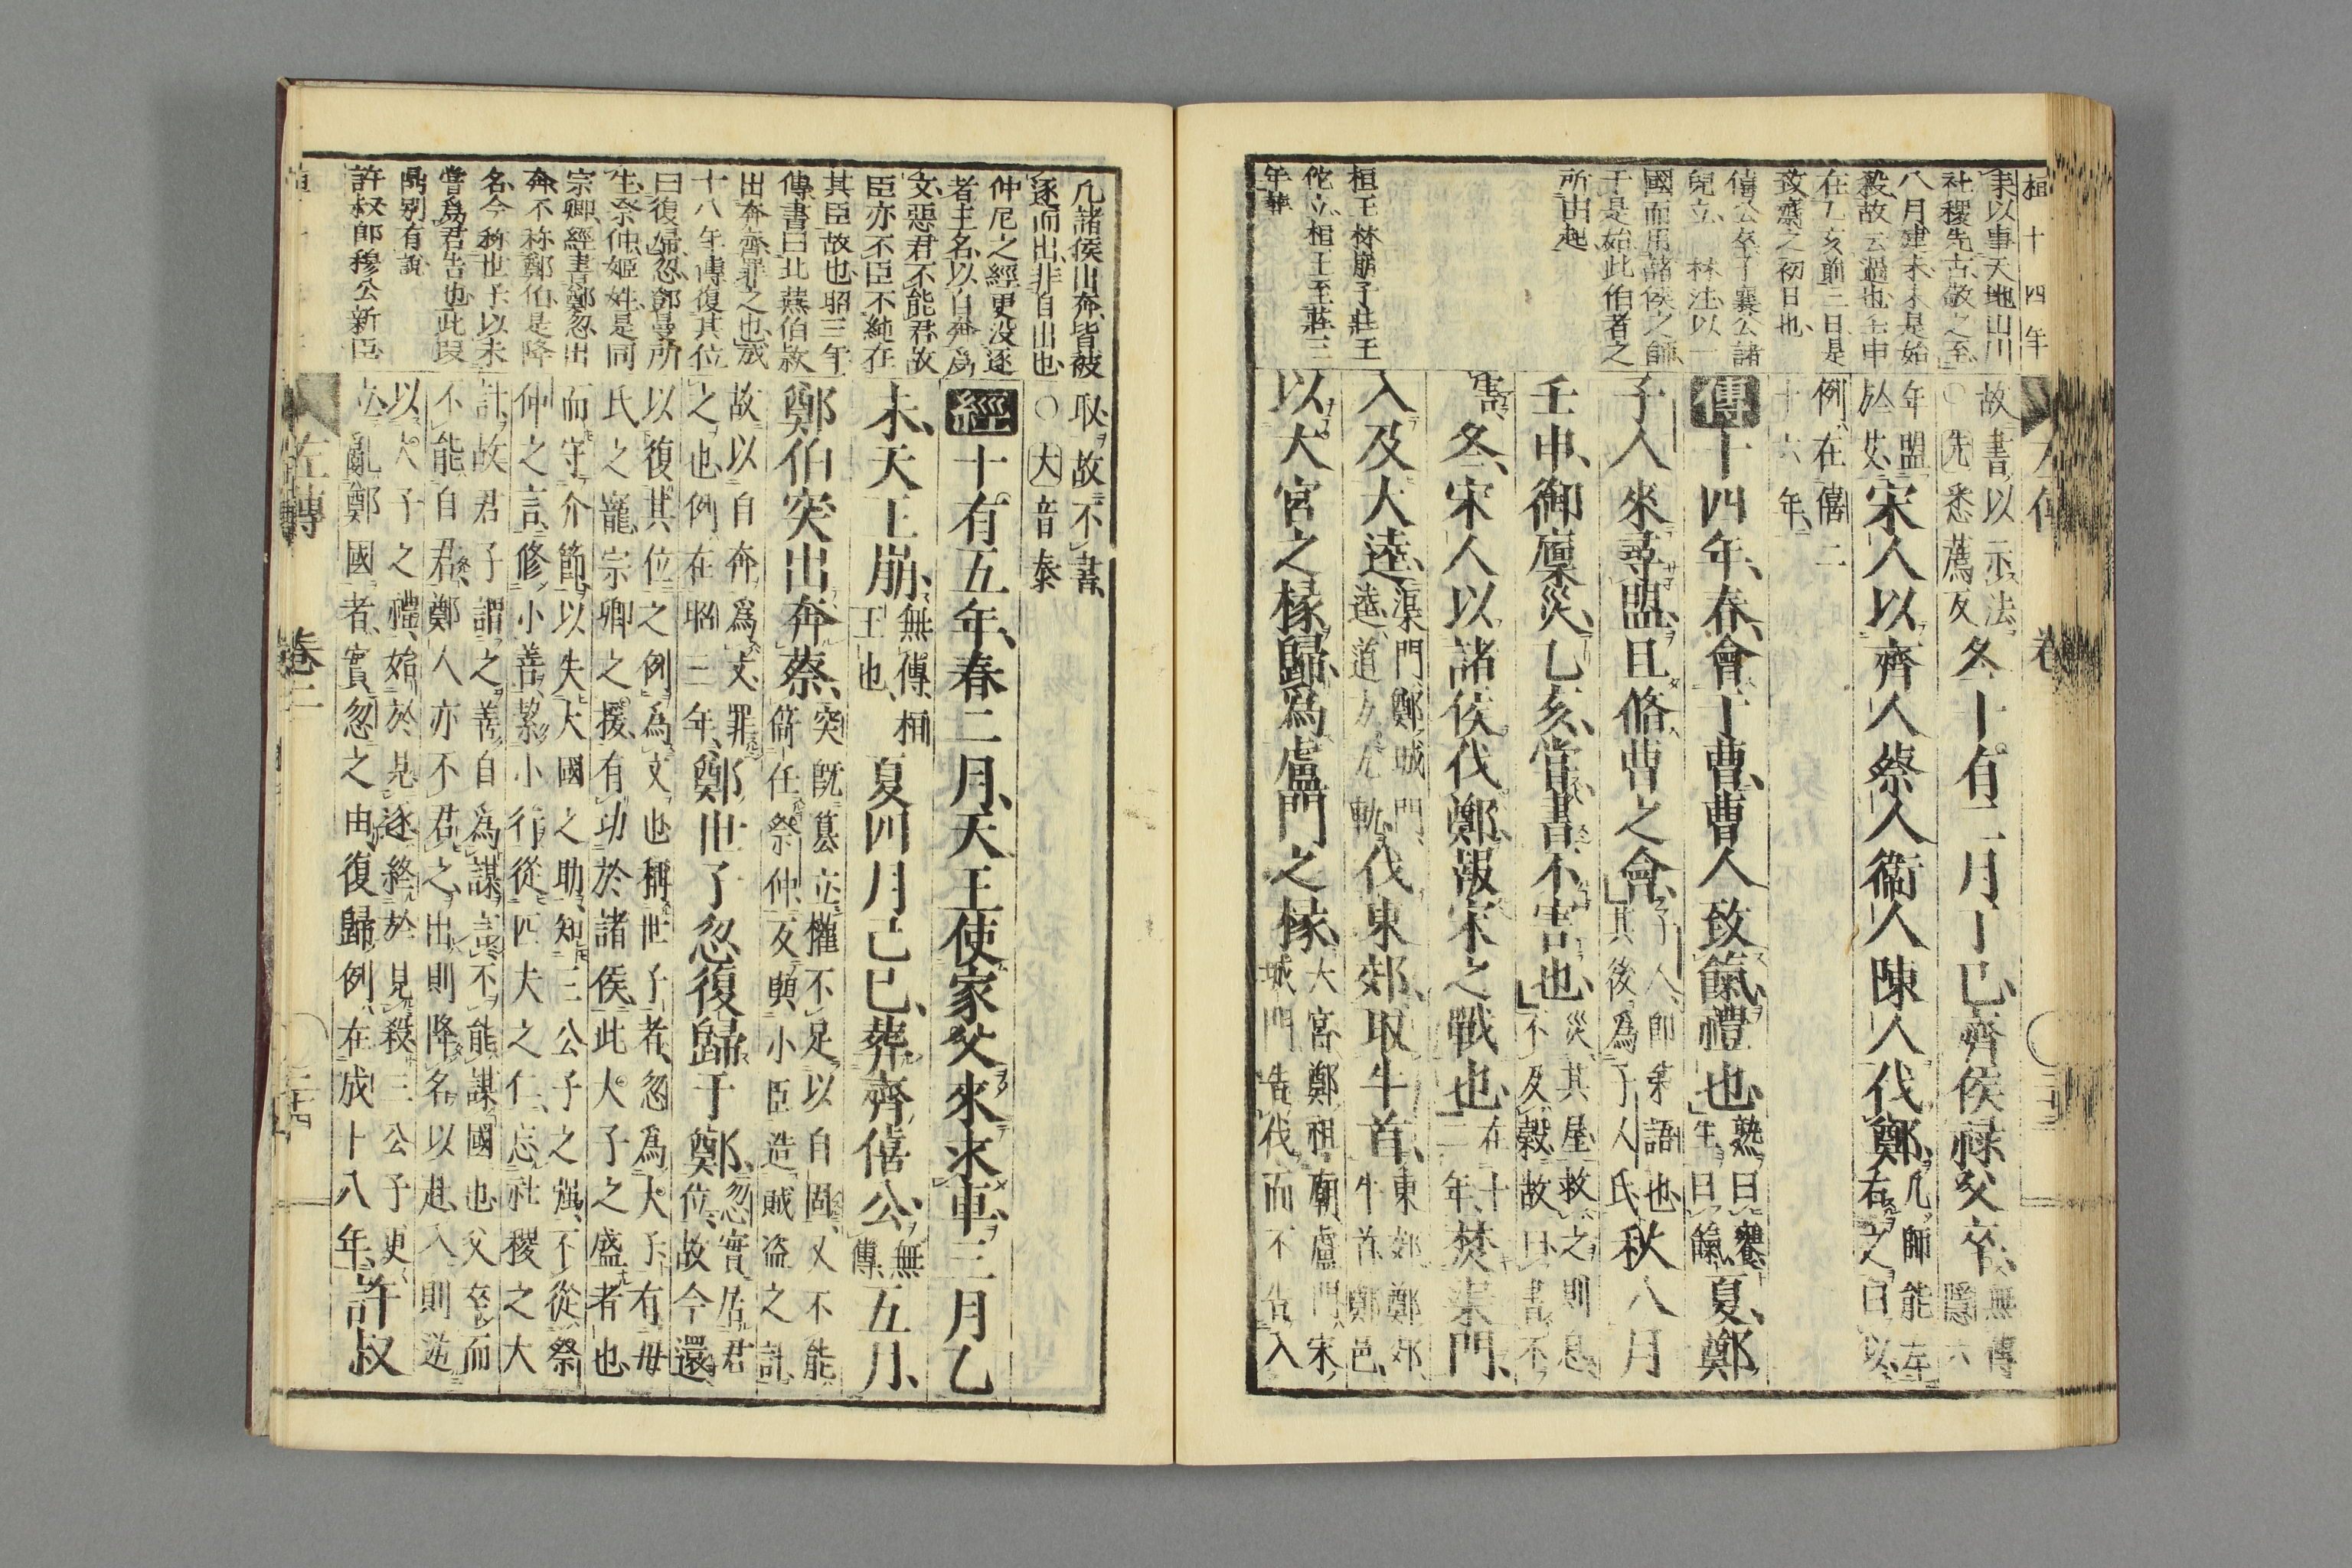 桓十四年
耒以事天地山川
社稷先古敬之至
八月建未未是始
殺故云過也壬申
在乙亥前三日是
致齋之初日也
僖公卒子襄公諸
兒立 林注以一
國而用諸侯之師
于是始此伯者之
所由起
桓王林崩子莊王
佗立桓王至莊三
年葬
故書以示法
〇先悉薦反
冬十有二月丁巳齊侯祿父卒
無傳
隱六
年盟
於艾
宋人以齊人蔡人衞人陳人伐鄭
凡師能左
右之曰以
例在僖二
十六年
傳十四年春會于曹曹人致餼禮也
熟曰饔
生曰餼
夏鄭
子人來尋盟且脩曹之會
子人即弟語也
其後爲子人氏
秋八月
壬申御廩災乙亥嘗書不害也
災其屋救之則息
不及穀故曰書不
害
冬宋人以諸侯伐鄭報宋之戰也
在十
二年
焚渠門
入及大逵
渠門鄭城門
逵道方九軌
伐東郊取牛首
東郊鄭郊
牛首鄭邑
以大宮之椽歸爲盧門之椽
大宮鄭祖廟盧門宋
城門告伐而不告入
凡諸侯出奔皆被
逐而出非自出也
仲尼之經更没逐
者主名以自奔爲
文惡君不能君故
臣亦不臣不純在
其臣故也昭三年
傳書曰北燕伯款
出奔齊罪之也成
十八年傳復其位
曰復歸忽鄧曼所
生祭仲姬姓是同
宗卿經書鄭忽出
奔不称鄭伯是降
名今称世子以未
嘗爲君告也此説
鼎別有説
許叔即穆公新臣
恥故不書
〇大音泰
經十有五年春二月天王使家父來求車三月乙
未天王崩
無傳桓
王也
夏四月己巳葬齊僖公
無
傳
五月
鄭伯突出奔蔡
突既篡立權不足以自固又不能
倚任祭仲反與小臣造賊盗之計
故以自奔爲文罪
之也例在昭三年
鄭世子忽復歸于鄭
忽實居君
位故今還
以復其位之例爲文也稱世子者忽爲大子有母
氏之寵宗卿之援有功於諸侯此大子之盛者也
而守介節以失大國之助知三公子之彊不從祭
仲之言修小善絜小行從匹夫之仁忘社稷之大
計故君子謂之善自爲謀言不能謀國也父卒而
不能自君鄭人亦不君之出則降名以赴入則逆
以大子之禮始於見逐終於見殺三公子更
立亂鄭國者實忽之由復歸例在成十八年
許叔
左傳
卷二